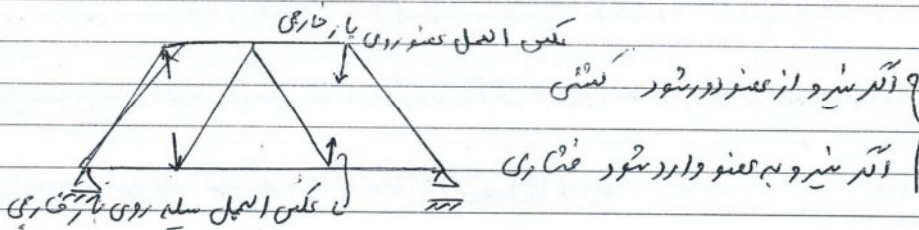 عکس العمل عضو روی بار خارجی
اگر نیرو از عضو دور شود کششی
اگر نیرو به عضو وارد شود فشاری
عکس العمل سازه روی بار خارجی